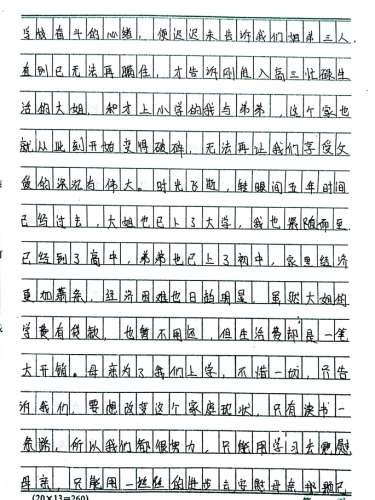 与该奋斗的心绪，便迟迟未告诉我们姐弟三人，
直到已无法再瞒住，才告诉刚进入高三忙碌生
活的大姐，和才上小学的我与弟弟，这个家也
就从此刻开始变得破碎，无法再让我们享受父
爱的深沉与伟大。时光飞逝，转眼间五年时间
已经过去，大姐也已上了大学，我也紧随而至
已经到了高中，弟弟也已上了初中，家里经济
更加萧条，经济困难也日趋明显。虽然大姐的
学费有贷款，也暂不用还，但生活费却是一笔
大开销。母亲为了我们上学，不惜一切，只告
诉我们，要想改变这个家庭现状，只有读书一
条路，所以我们都很努力，只能用学习去宽慰
母亲，只能用一丝丝的进步去安慰母亲那颗已
(20×13=260)